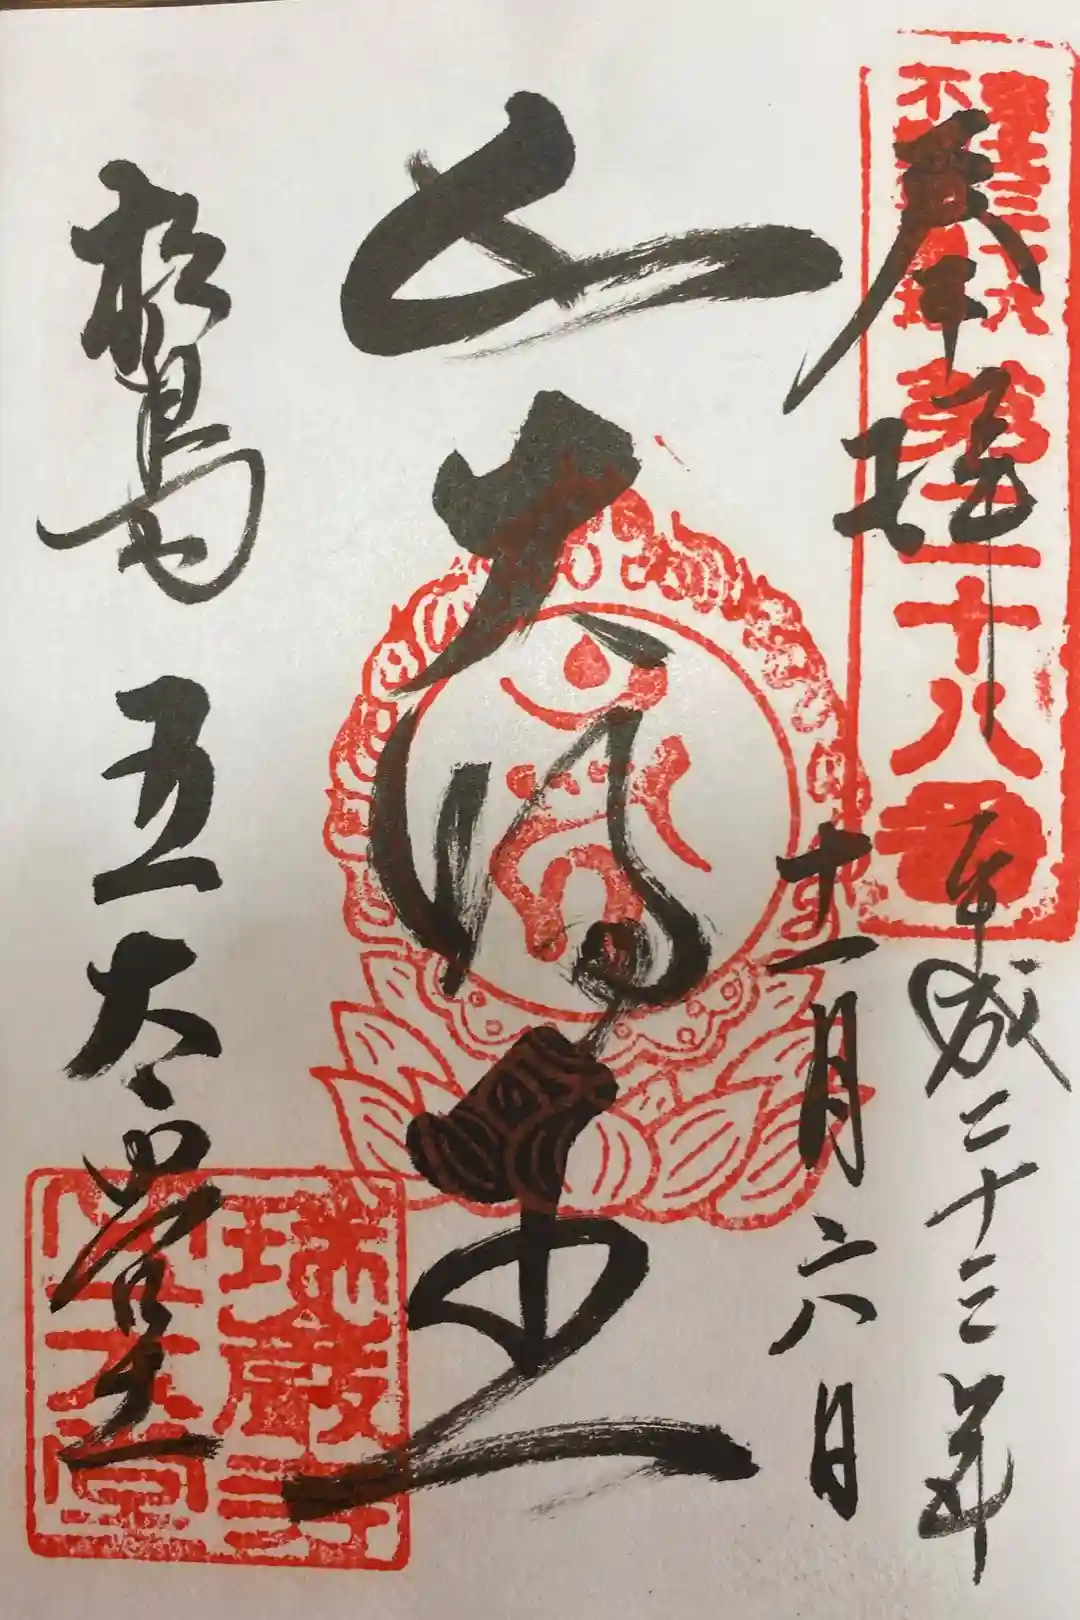 奉拝
第二十八番
平成二十三年
十一月六日
五大明王
松島 五大堂
瑞巌寺
五大堂